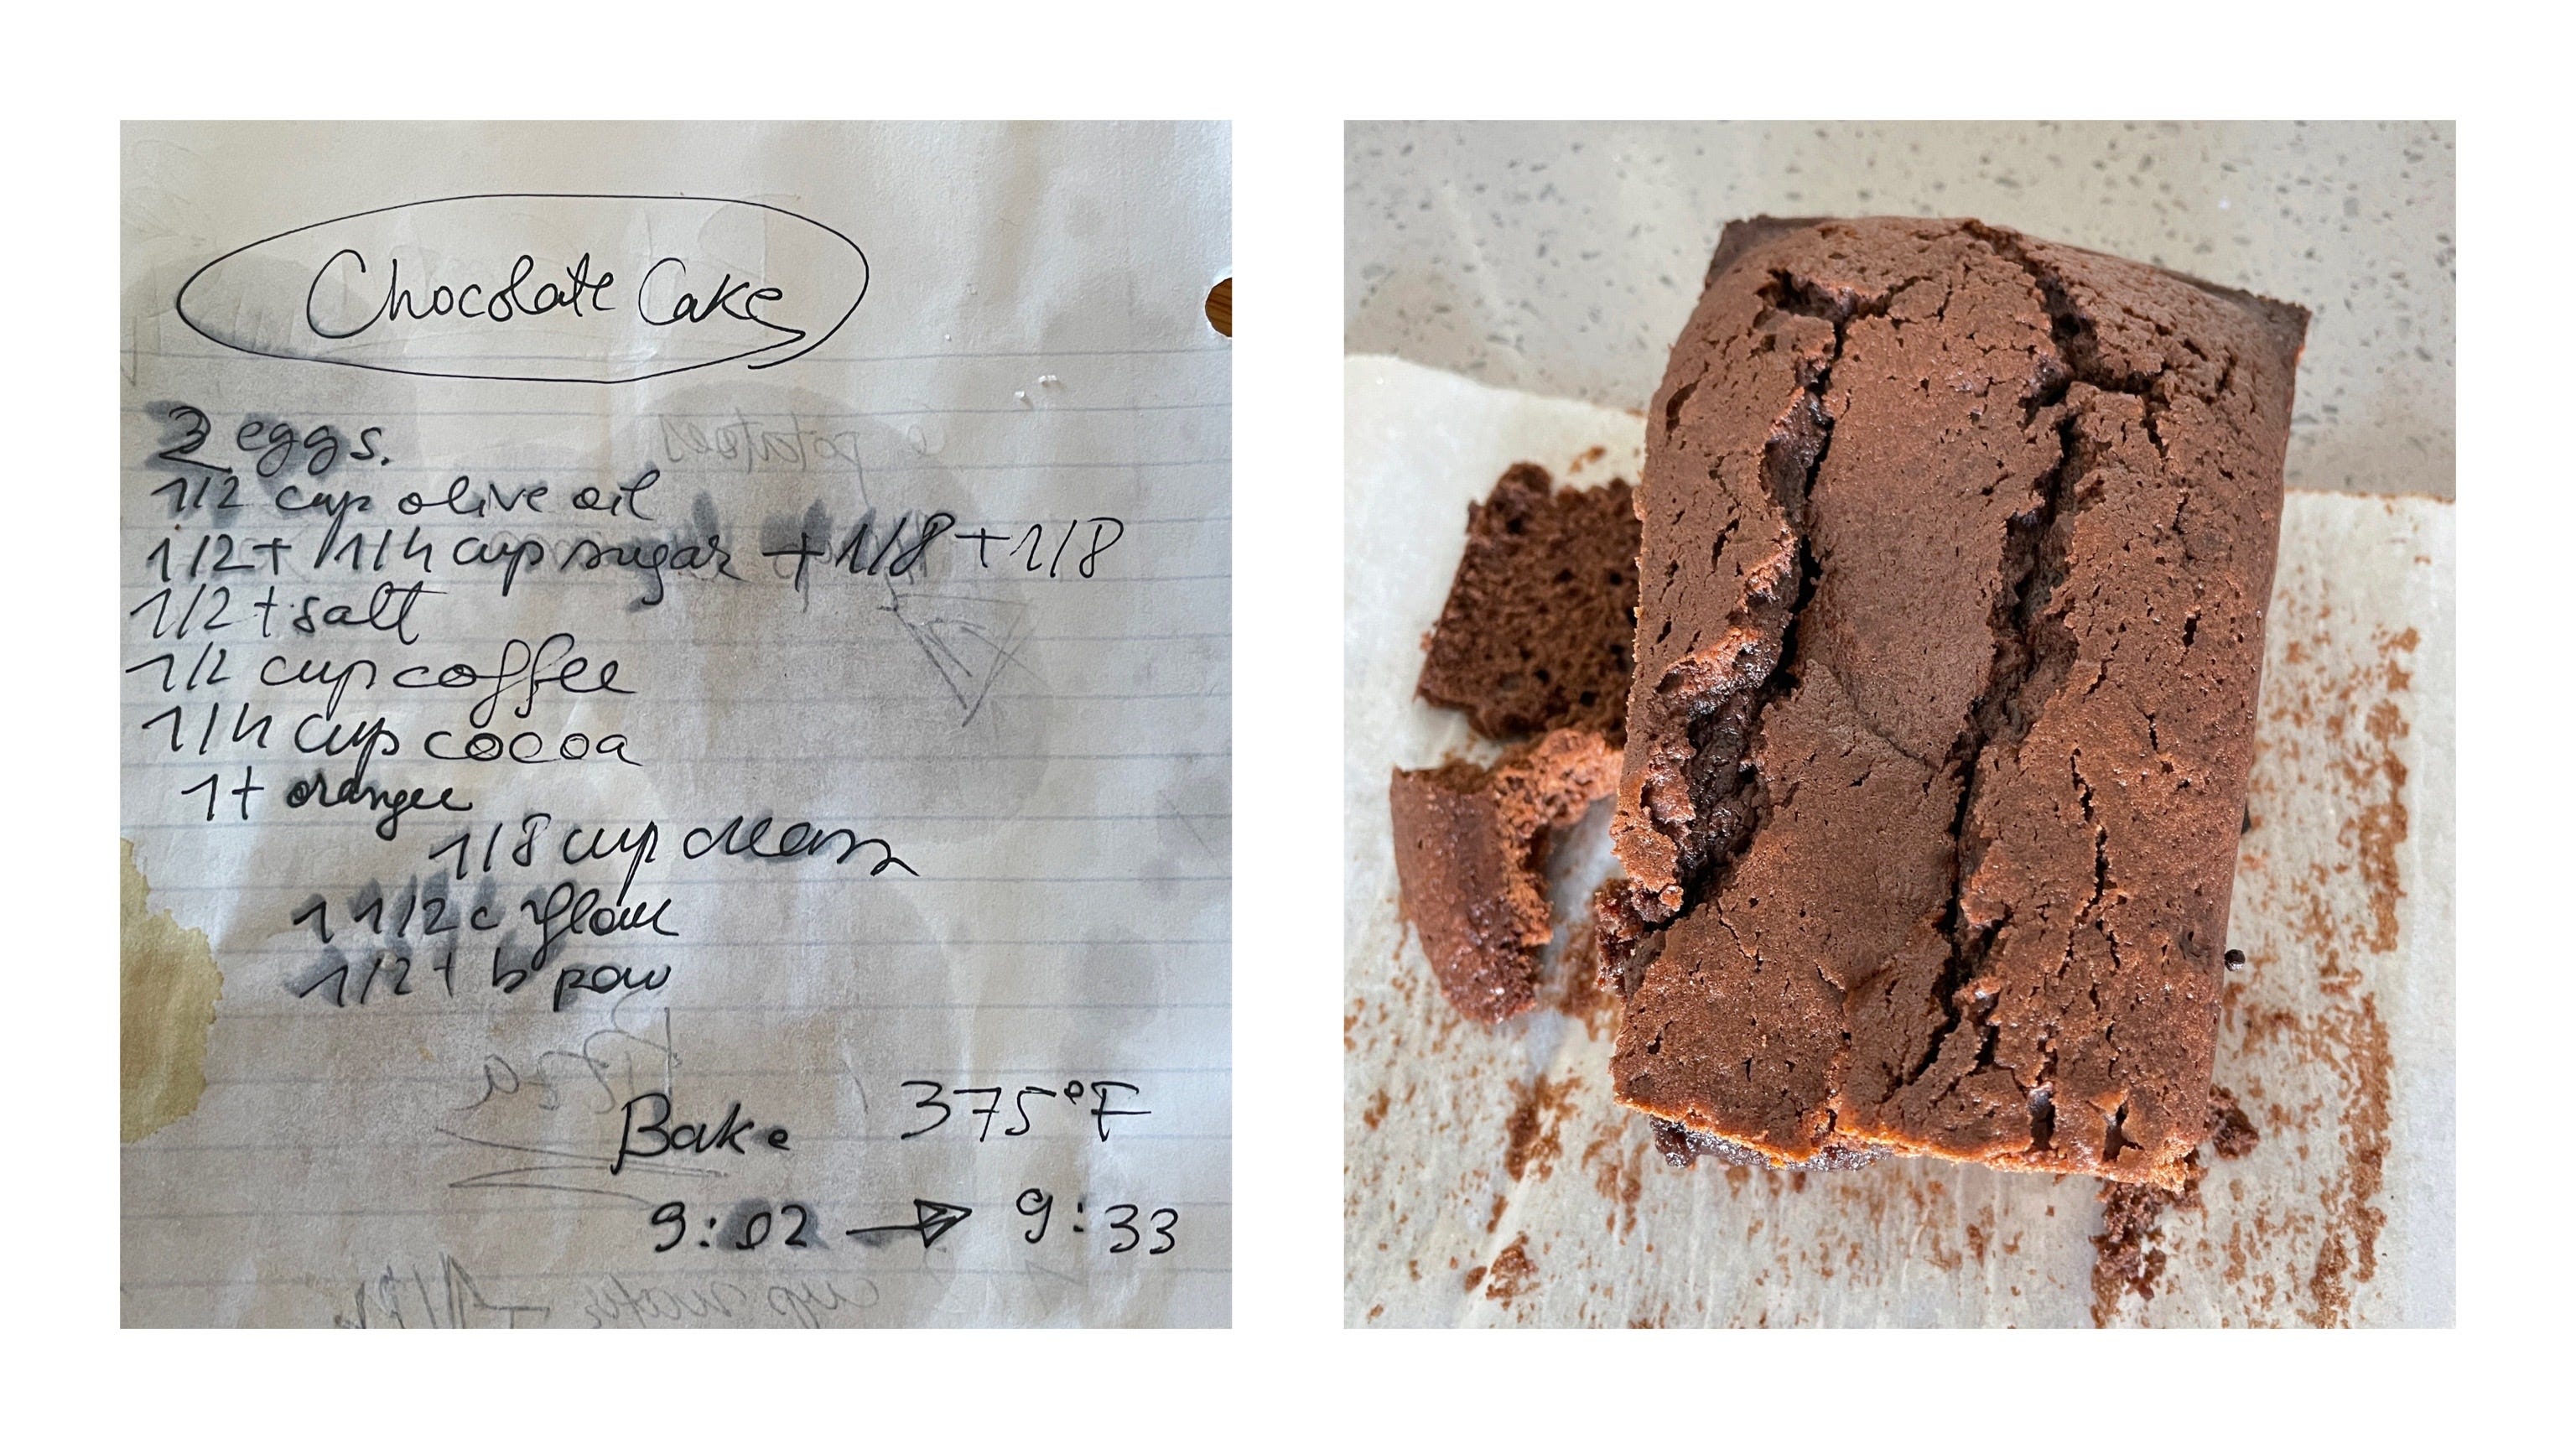 Chocolate Cake
eggs.
1/2 cup olive oil
1/2 + 1/4 cup sugar + 1/8 + 1/8
1/2 t salt
1/2 cup coffee
1/4 cup cocoa
1 t orange
1/8 cup cream
1 1/2 c flour
1/2 t b pow
Bake 375°F
9:02 → 9:33